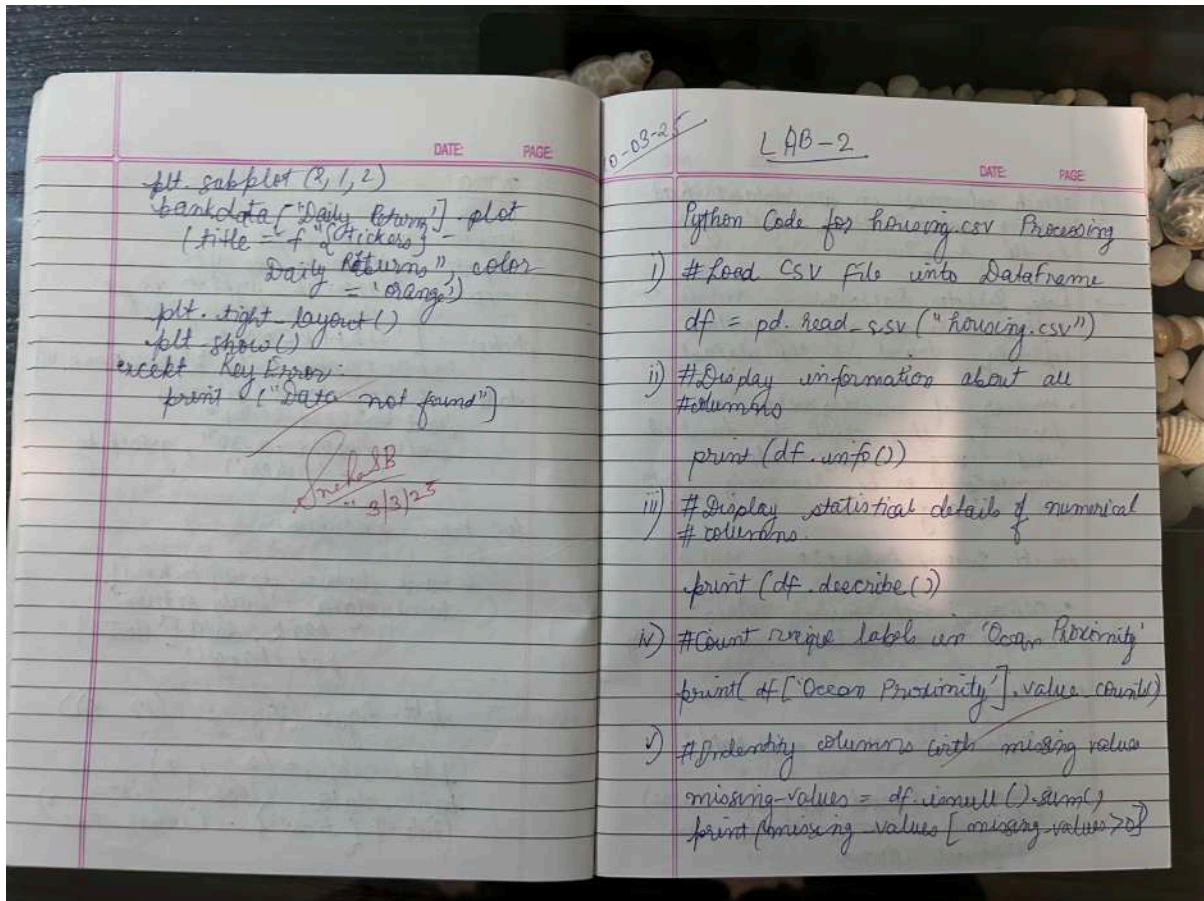 DATE: PAGE:
plt. subplot (2, 1, 2)
bankdata ["Daily Return"]. plot
(title = f "{tickers} -
Daily Returns", color
= 'orange')
plt. tight_layout()
plt. show()
except KeyError:
print ("Data not found")
SnehaSB
3/3/25
0-03-25
LAB-2
DATE: PAGE:
Python Code for housing.csv Processing
i) # Load CSV file into DataFrame
df = pd. read_csv ("housing.csv")
ii) #Display information about all
#columns
print (df.info())
iii) #Display statistical details of numerical
# columns.
print (df.describe())
iv) #Count unique labels in 'Ocean Proximity'
print( df ['Ocean Proximity'].value_counts()
v) #Identity columns with missing values
missing-values = df.isnull().sum()
print (missing_values [missing-values>0]